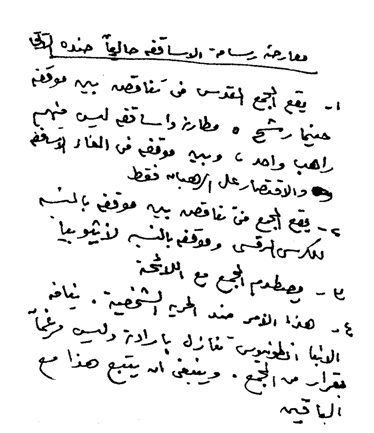 معارضة رسامة الأساقفة حالياً ضده
١- يقع المجمع المقدس فى تناقض بين موقفه
حينما رشح ٥ مطارنة وأساقفة ليس منهم
راهب واحد، وبين موقفه فى الغاء الأساقفة
والاقتصار على الرهبان فقط
٢- يقع المجمع فى تناقض بين موقفه بالنسبة
للكرسى المرقسى وموقفه بالنسبة لأثيوبيا
٣- يصطدم المجمع مع اللائحة
٤- هذا الأمر ضد الحرية الشخصية. نيافة
الأنبا أنطونيوس تنازل بإرادة وليس مرغماً
بقرار من المجمع. وينبغى أن يتبع هذا مع
الباقين